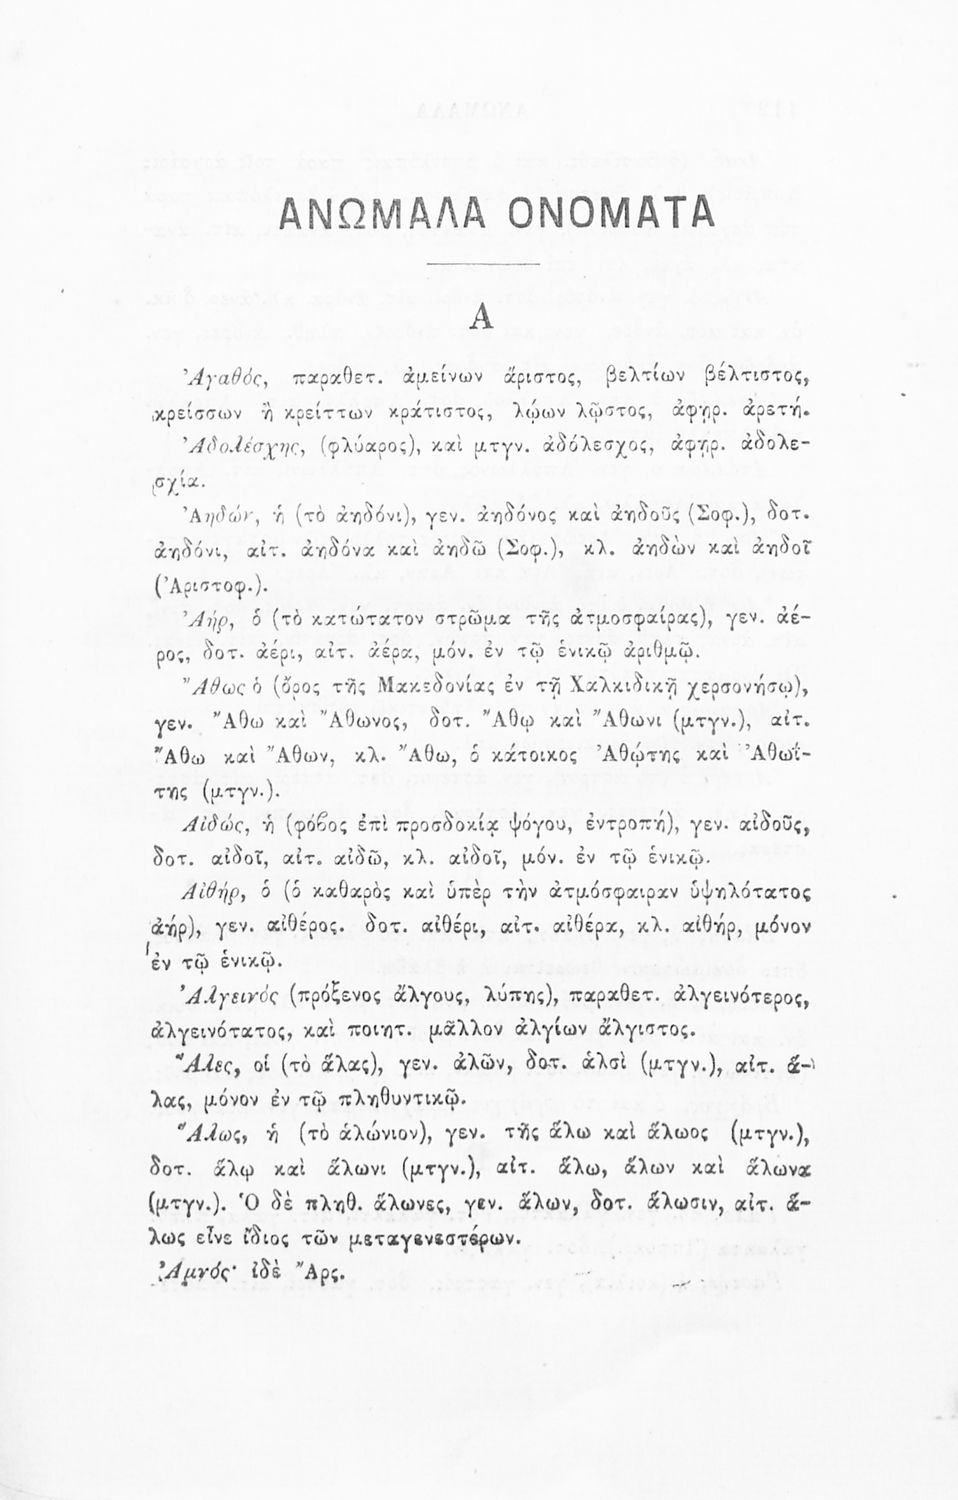 ΑΝΩΜΑΛΑ ΟΝΟΜΑΤΑ
Α
Ἀγαθός, παραθετ. ἀμείνων ἄριστος, βελτίων βέλτιστος,
κρείσσων ἢ κρείττων κράτιστος, λῴων λῷστος, ἀφηρ. ἀρετή.
Ἀδολέσχης, (φλύαρος), καὶ μτγν. ἀδόλεσχος, ἀφηρ. ἀδολε-
σχία.
Ἀηδών, ἡ (τὸ ἀηδόνι), γεν. ἀηδόνος καὶ ἀηδοῦς (Σοφ.), δοτ.
ἀηδόνι, αἰτ. ἀηδόνα καὶ ἀηδῶ (Σοφ.), κλ. ἀηδὼν καὶ ἀηδοῖ
(Ἀριστοφ.).
Ἀήρ, ὁ (τὸ κατώτατον στρῶμα τῆς ἀτμοσφαίρας), γεν. ἀέ-
ρος, δοτ. ἀέρι, αἰτ. ἀέρα, μόν. ἐν τῷ ἑνικῷ ἀριθμῷ.
Ἄθως ὁ (ὄρος τῆς Μακεδονίας ἐν τῇ Χαλκιδικῇ χερσονήσῳ),
γεν. Ἄθω καὶ Ἄθωνος, δοτ. Ἄθῳ καὶ Ἄθωνι (μτγν.), αἰτ.
Ἄθω καὶ Ἄθων, κλ. Ἄθω, ὁ κάτοικος Ἀθῴτης καὶ Ἀθωΐ-
της (μτγν.).
Αἰδώς, ἡ (φόβος ἐπὶ προσδοκίᾳ ψόγου, ἐντροπή), γεν. αἰδοῦς,
δοτ. αἰδοῖ, αἰτ. αἰδῶ, κλ. αἰδοῖ, μόν. ἐν τῷ ἑνικῷ.
Αἰθήρ, ὁ (ὁ καθαρὸς καὶ ὑπὲρ τὴν ἀτμόσφαιραν ὑψηλότατος
ἀήρ), γεν. αἰθέρος. δοτ. αἰθέρι, αἰτ. αἰθέρα, κλ. αἰθήρ, μόνον
ἐν τῷ ἑνικῷ.
Ἀλγεινός (πρόξενος ἄλγους, λύπης), παραθετ. ἀλγεινότερος,
ἀλγεινότατος, καὶ ποιητ. μᾶλλον ἀλγίων ἄλγιστος.
Ἅλες, οἱ (τὸ ἅλας), γεν. ἁλῶν, δοτ. ἁλσὶ (μτγν.), αἰτ. ἅ-
λας, μόνον ἐν τῷ πληθυντικῷ.
Ἅλως, ἡ (τὸ ἁλώνιον), γεν. τῆς ἅλω καὶ ἅλωος (μτγν.),
δοτ. ἅλῳ καὶ ἅλωνι (μτγν.), αἰτ. ἅλω, ἅλων καὶ ἅλωνα
(μτγν.). Ὁ δὲ πληθ. ἅλωνες, γεν. ἅλων, δοτ. ἅλωσιν, αἰτ. ἅ-
λως εἶνε ἴδιος τῶν μεταγενεστέρων.
Ἀμνός· ἰδὲ Ἄρς.